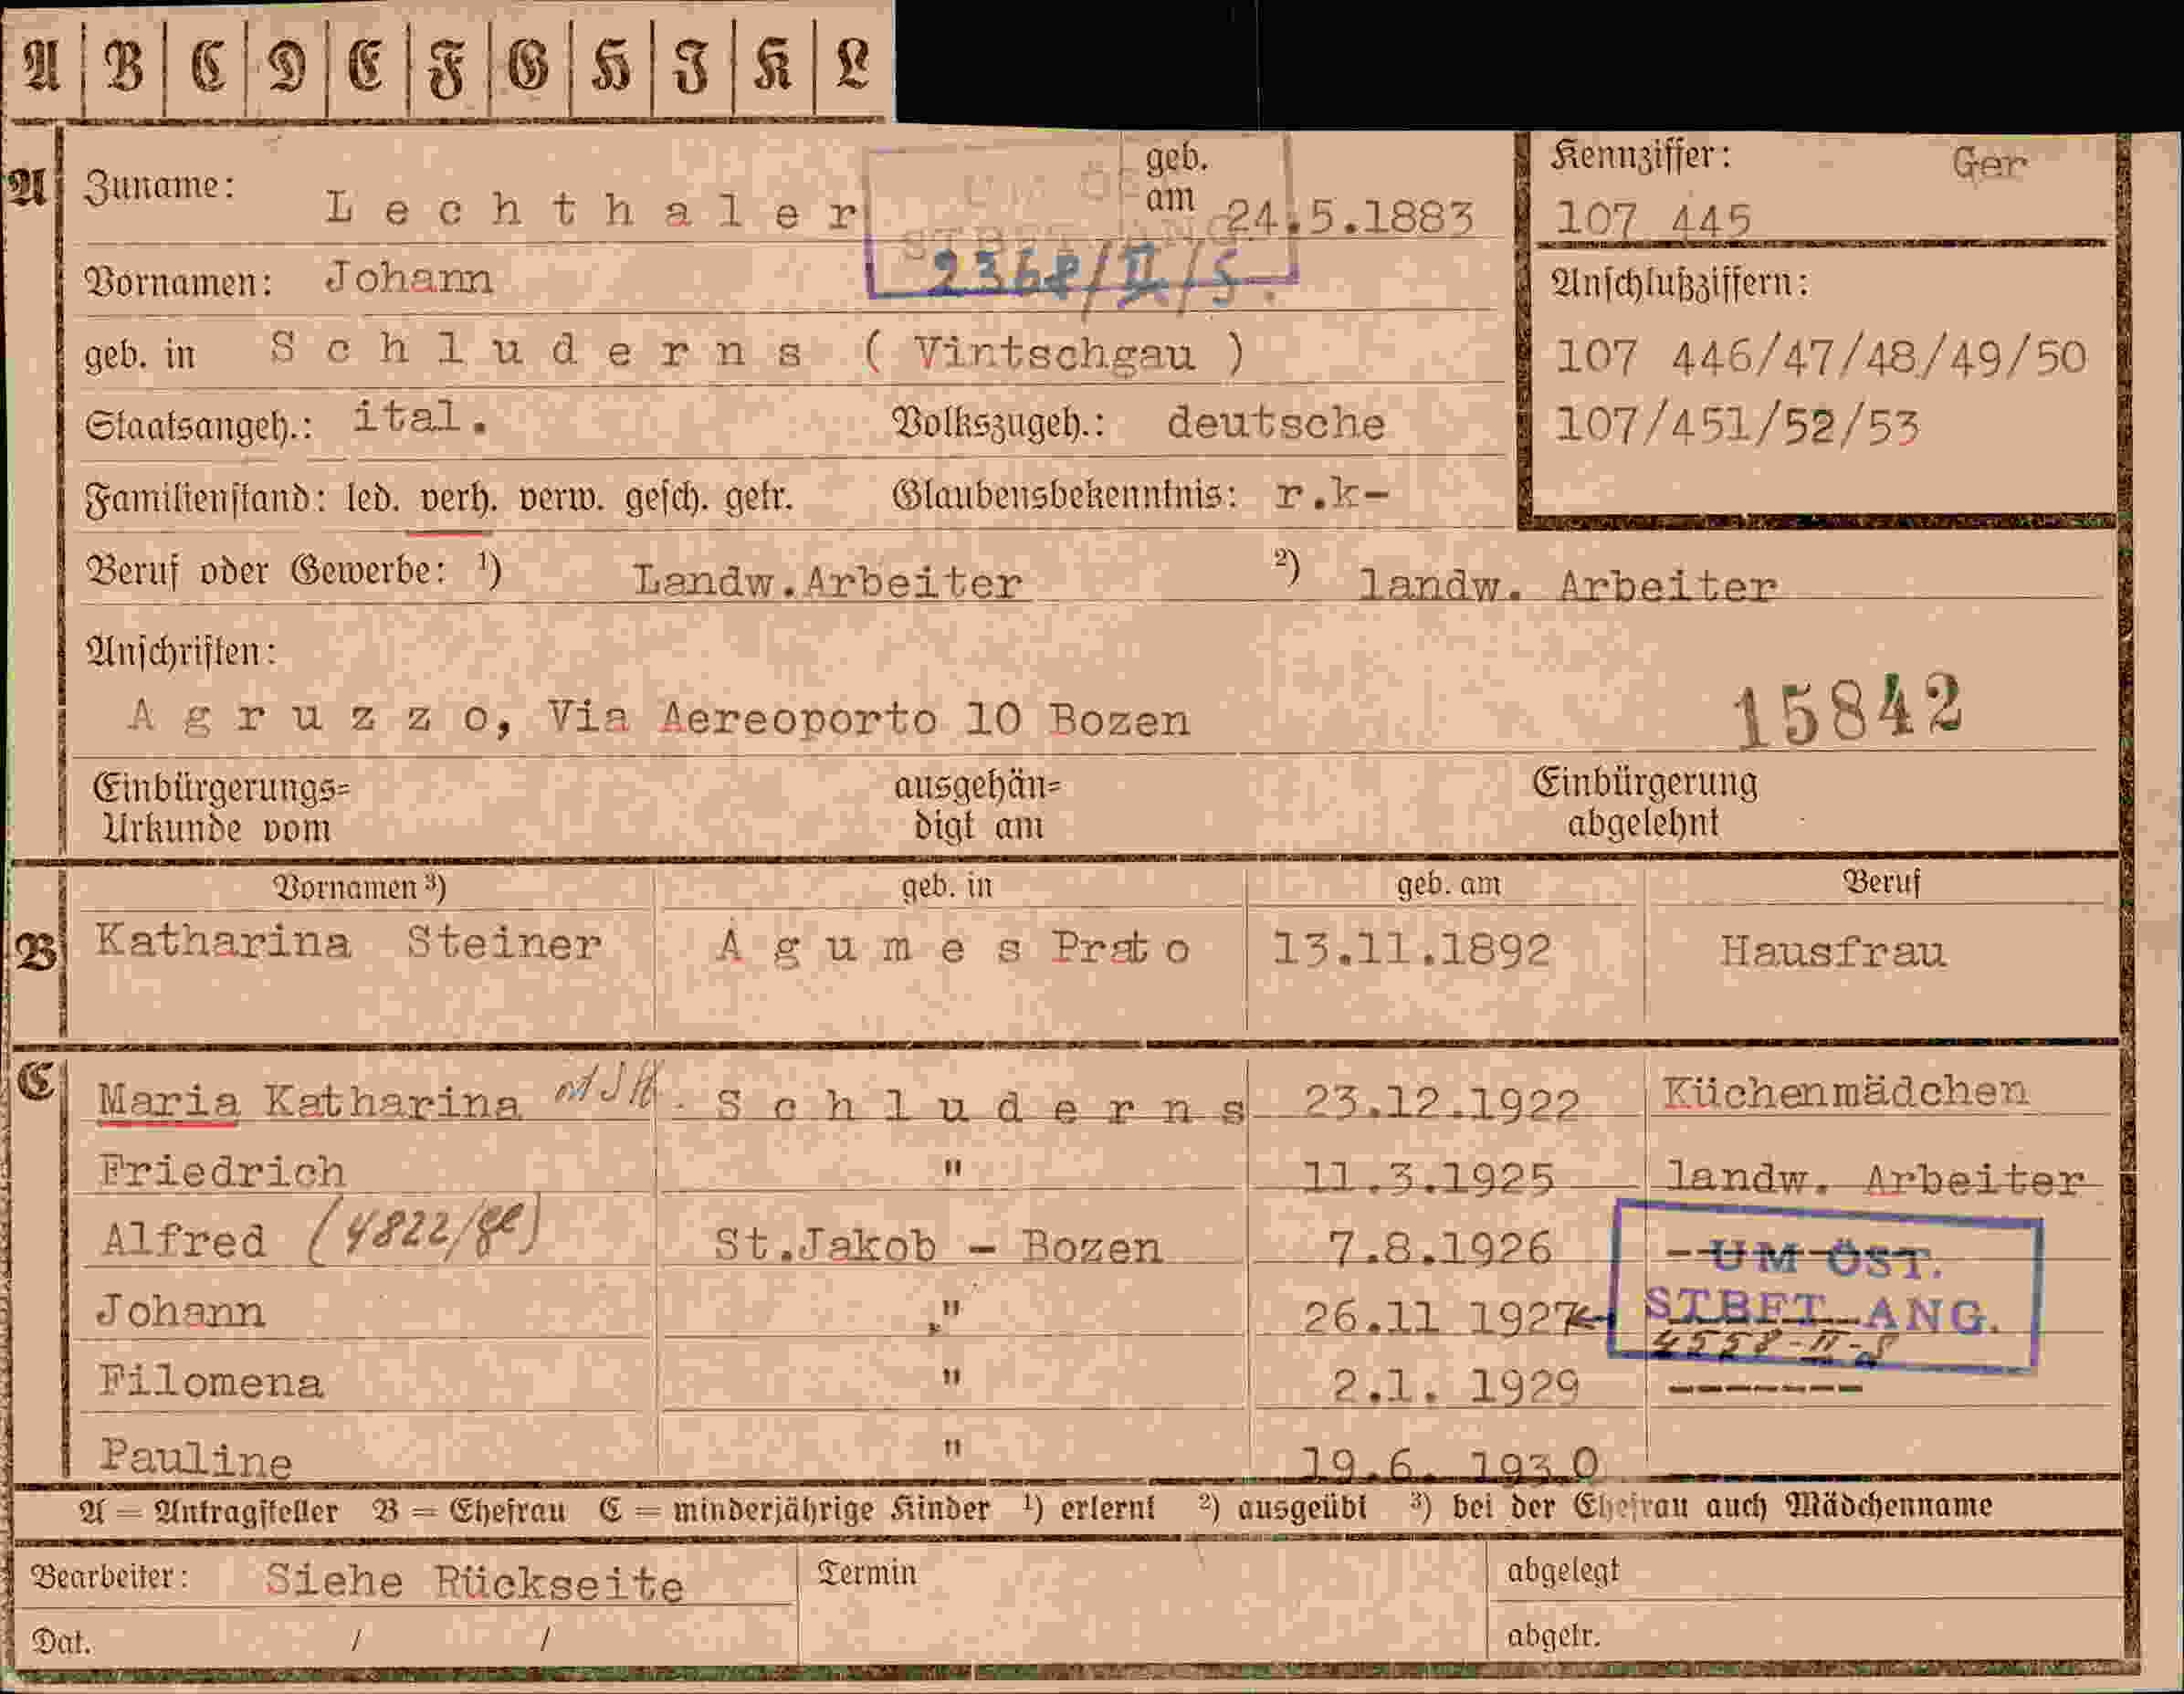 A | B | C | D | E | F | G | H | J | K | L
A Zuname: Lechthaler geb. am 24.5.1883
Kennziffer: Ger
107 445
2368/II/S.
Vornamen: Johann
Anschlußziffern:
geb. in Schluderns (Vintschgau)
107 446/47/48/49/50
Staatsangeh.: ital. Volkszugeh.: deutsche
107/451/52/53
Familienstand: led. verh. verw. gesch. getr. Glaubensbekenntnis: r.k-
Beruf oder Gewerbe: ¹) Landw.Arbeiter ²) landw. Arbeiter
Anschriften:
Agruzzo, Via Aereoporto 10 Bozen
15842
Einbürgerungs= Urkunde vom
ausgehän= digt am
Einbürgerung abgelehnt
Vornamen ³) geb. in geb. am Beruf
B Katharina Steiner Agumes Prato 13.11.1892 Hausfrau
C Maria Katharina Schluderns 23.12.1922 Küchenmädchen
Friedrich " 11.3.1925 landw. Arbeiter
Alfred (4822/ge) St.Jakob - Bozen 7.8.1926
UM ÖST.
Johann " 26.11 1927
STBFT. ANG.
4558-II-S
Filomena " 2.1. 1929 -------
Pauline " 19.6. 1930
A = Antragsteller B = Ehefrau C = minderjährige Kinder ¹) erlernt ²) ausgeübt ³) bei der Ehefrau auch Mädchenname
Bearbeiter: Siehe Rückseite Termin abgelegt
Dat. / / abgetr.